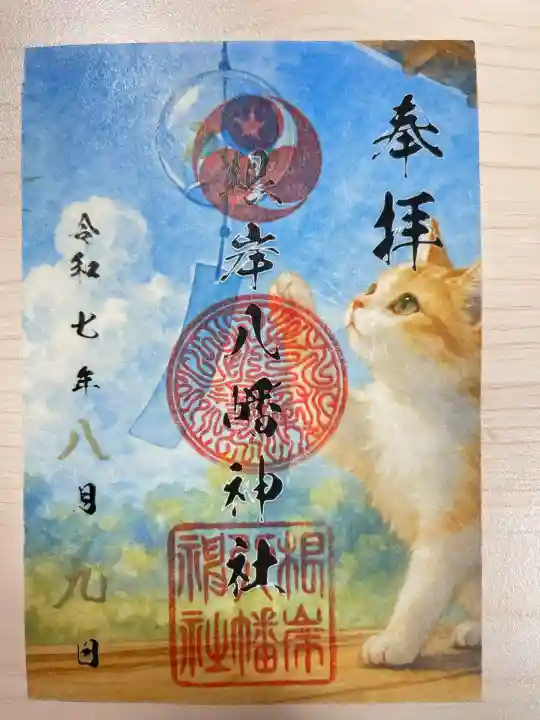 奉拝
根岸八幡神社
令和七年八月九日
根岸
八幡
神社